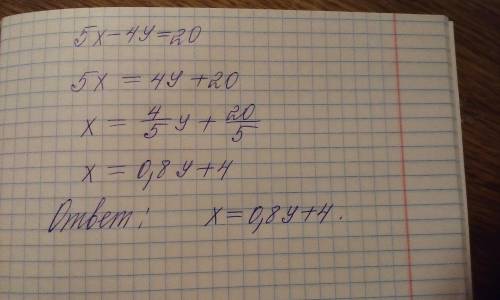 5x-4y=20
5x = 4y+20
x = 4/5 y + 20/5
x = 0,8y+4
Ответ: x=0,8y+4.